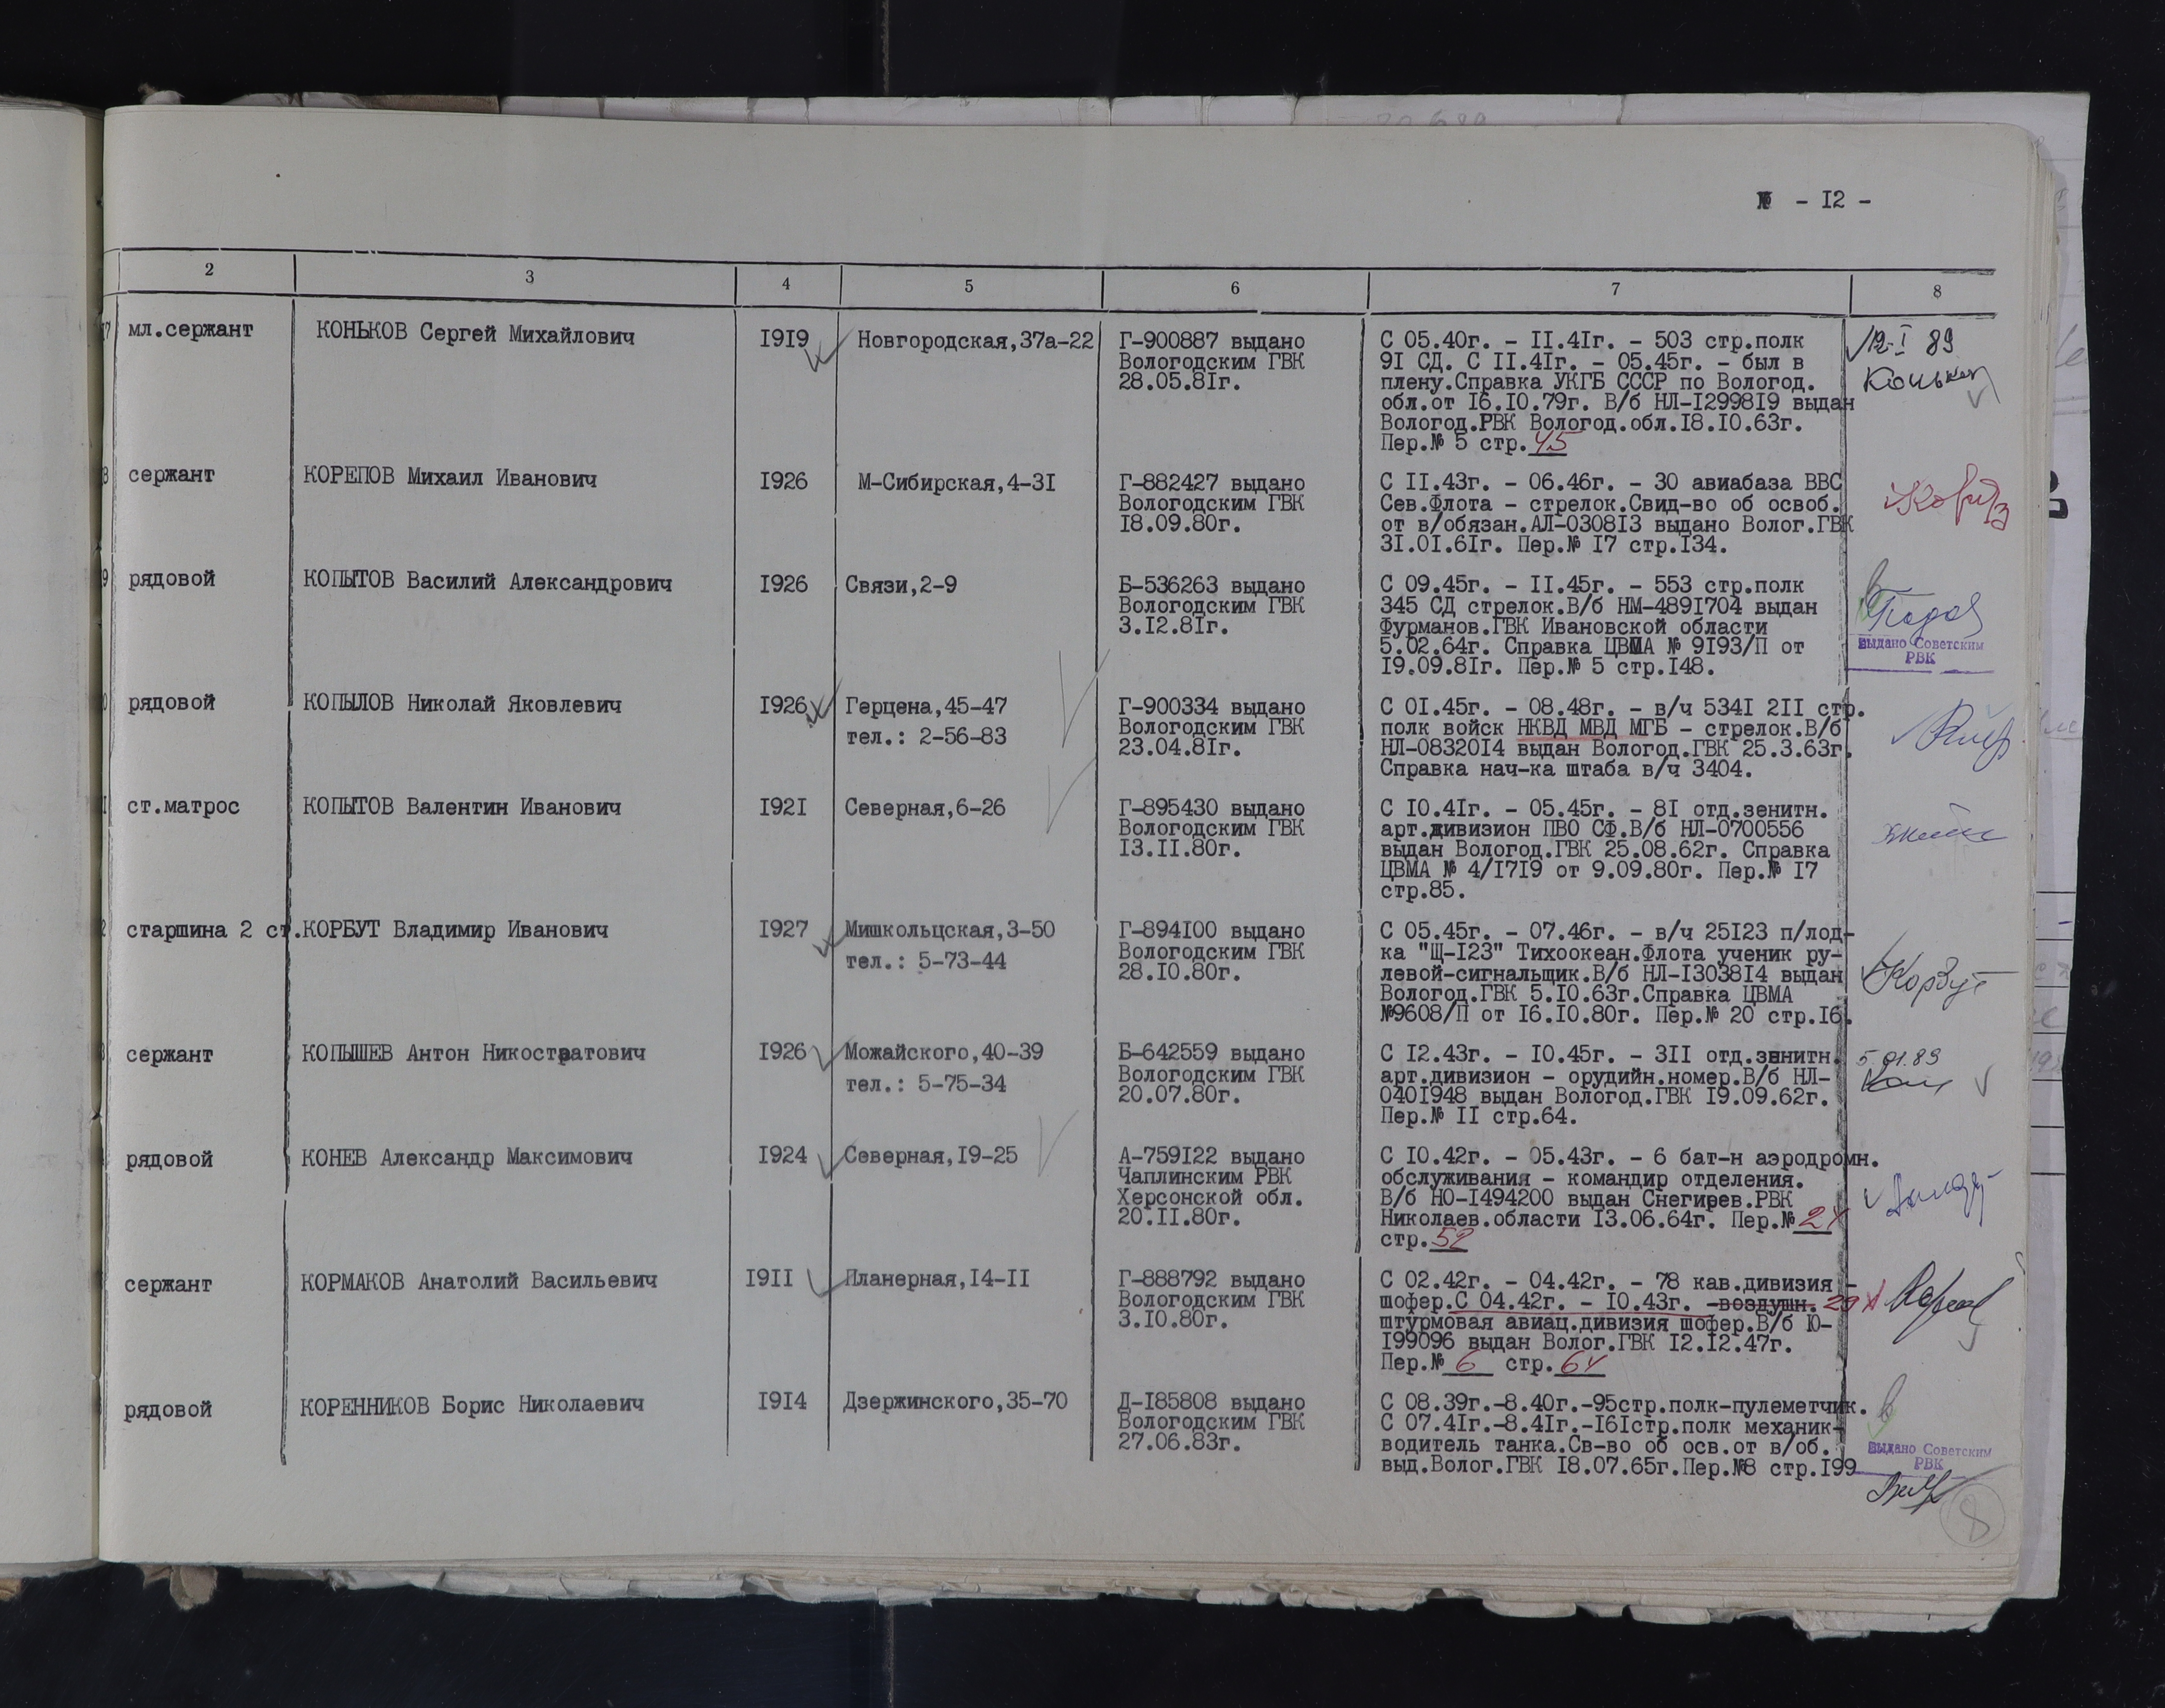 № - I2 -
2 3 4 5 6 7 8
мл.сержант КОНЬКОВ Сергей Михайлович I9I9 Новгородская,37а-22 Г-900887 выдано С 05.40г. - II.4Iг. - 503 стр.полк I2.I 89
Вологодским ГВК 9I СД. С II.4Iг. - 05.45г. - был в
28.05.8Iг. плену.Справка УКГБ СССР по Вологод. Коньков
обл.от I6.I0.79г. В/б НЛ-I2998I9 выдан
Вологод.РВК Вологод.обл.I8.I0.63г.
Пер.№ 5 стр.45
сержант КОРЕПОВ Михаил Иванович I926 М-Сибирская,4-3I Г-882427 выдано С II.43г. - 06.46г. - 30 авиабаза ВВС
Вологодским ГВК Сев.Флота - стрелок.Свид-во об освоб.
I8.09.80г. от в/обязан.АЛ-0308I3 выдано Волог.ГВК
3I.0I.6Iг. Пер.№ I7 стр.I34.
рядовой КОПЫТОВ Василий Александрович I926 Связи,2-9 Б-536263 выдано С 09.45г. - II.45г. - 553 стр.полк
Вологодским ГВК 345 СД стрелок.В/б НМ-489I704 выдан
3.I2.8Iг. Фурманов.ГВК Ивановской области
5.02.64г. Справка ЦВМА № 9I93/П от Выдано Советским
I9.09.8Iг. Пер.№ 5 стр.I48. РВК
рядовой КОПЫЛОВ Николай Яковлевич I926 Герцена,45-47 Г-900334 выдано С 0I.45г. - 08.48г. - в/ч 534I 2II стр.
тел.: 2-56-83 Вологодским ГВК полк войск НКВД МВД МГБ - стрелок.В/б
23.04.8Iг. НЛ-08320I4 выдан Вологод.ГВК 25.3.63г.
Справка нач-ка штаба в/ч 3404.
ст.матрос КОПЫТОВ Валентин Иванович I92I Северная,6-26 Г-895430 выдано С I0.4Iг. - 05.45г. - 8I отд.зенитн.
Вологодским ГВК арт.дивизион ПВО СФ.В/б НЛ-0700556
I3.II.80г. выдан Вологод.ГВК 25.08.62г. Справка
ЦВМА № 4/I7I9 от 9.09.80г. Пер.№ I7
стр.85.
старшина 2 ст. КОРБУТ Владимир Иванович I927 Мишкольцская,3-50 Г-894I00 выдано С 05.45г. - 07.46г. - в/ч 25I23 п/лод-
тел.: 5-73-44 Вологодским ГВК ка "Щ-I23" Тихоокеан.Флота ученик ру-
28.I0.80г. левой-сигнальщик.В/б НЛ-I3038I4 выдан Корбут
Вологод.ГВК 5.I0.63г.Справка ЦВМА
№9608/П от I6.I0.80г. Пер.№ 20 стр.I6.
сержант КОПЫШЕВ Антон Никостратович I926 Можайского,40-39 Б-642559 выдано С I2.43г. - I0.45г. - 3II отд.зенитн. 5.01.89
тел.: 5-75-34 Вологодским ГВК арт.дивизион - орудийн.номер.В/б НЛ-
20.07.80г. 040I948 выдан Вологод.ГВК I9.09.62г.
Пер.№ II стр.64.
рядовой КОНЕВ Александр Максимович I924 Северная,I9-25 А-759I22 выдано С I0.42г. - 05.43г. - 6 бат-н аэродромн.
Чаплинским РВК обслуживания - командир отделения.
Херсонской обл. В/б НО-I494200 выдан Снегирев.РВК
20.II.80г. Николаев.области I3.06.64г. Пер.№
стр.52
сержант КОРМАКОВ Анатолий Васильевич I9II Планерная,I4-II Г-888792 выдано С 02.42г. - 04.42г. - 78 кав.дивизия -
Вологодским ГВК шофер.С 04.42г. - I0.43г. -воздушн.
3.I0.80г. штурмовая авиац.дивизия шофер.В/б Ю-
I99096 выдан Волог.ГВК I2.I2.47г.
Пер.№ 6 стр.64
рядовой КОРЕННИКОВ Борис Николаевич I9I4 Дзержинского,35-70 Д-I85808 выдано С 08.39г.-8.40г.-95стр.полк-пулеметчик.
Вологодским ГВК С 07.4Iг.-8.4Iг.-I6Iстр.полк механик-
27.06.83г. водитель танка.Св-во об осв.от в/об. Выдано Советским
выд.Волог.ГВК I8.07.65г.Пер.№8 стр.I99 РВК
8